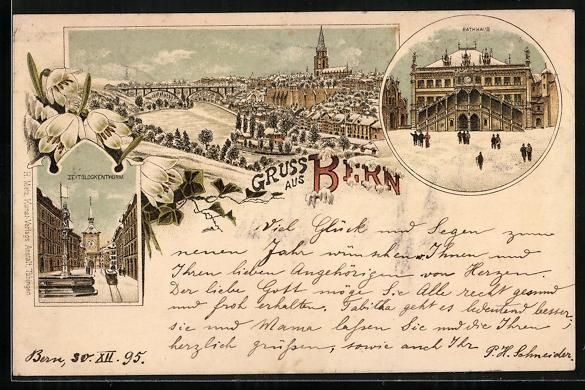 RATHHAUS
ZEITGLOCKENTHURM
GRUSS
AUS
BERN
Viel Glück und Segen zum
neuen Jahr wünschen Ihnen und
Ihren lieben Angehörigen von Herzen.
Der liebe Gott möge Sie Alle recht gesund
und froh erhalten. Tabitha geht es bedeutend besser,
sie und Mama lassen Sie und die Ihren
herzlich grüßen, sowie auch Ihr
P. H. Schneider.
Bern, 30. XII. 95.
Kunst-Verlags-Anstalt Tübingen